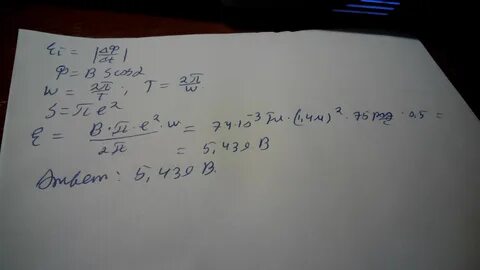 ℰi = |ΔФ/Δt|
Ф = B S cosα
w = 2π/T ; T = 2π/w
S = πe²
ℰ = B·π·e²·w/2π = 74·10⁻³ Тл · (1,4м)² · 75 рад · 0,5 =
= 5,439 В
Ответ: 5,439 В.